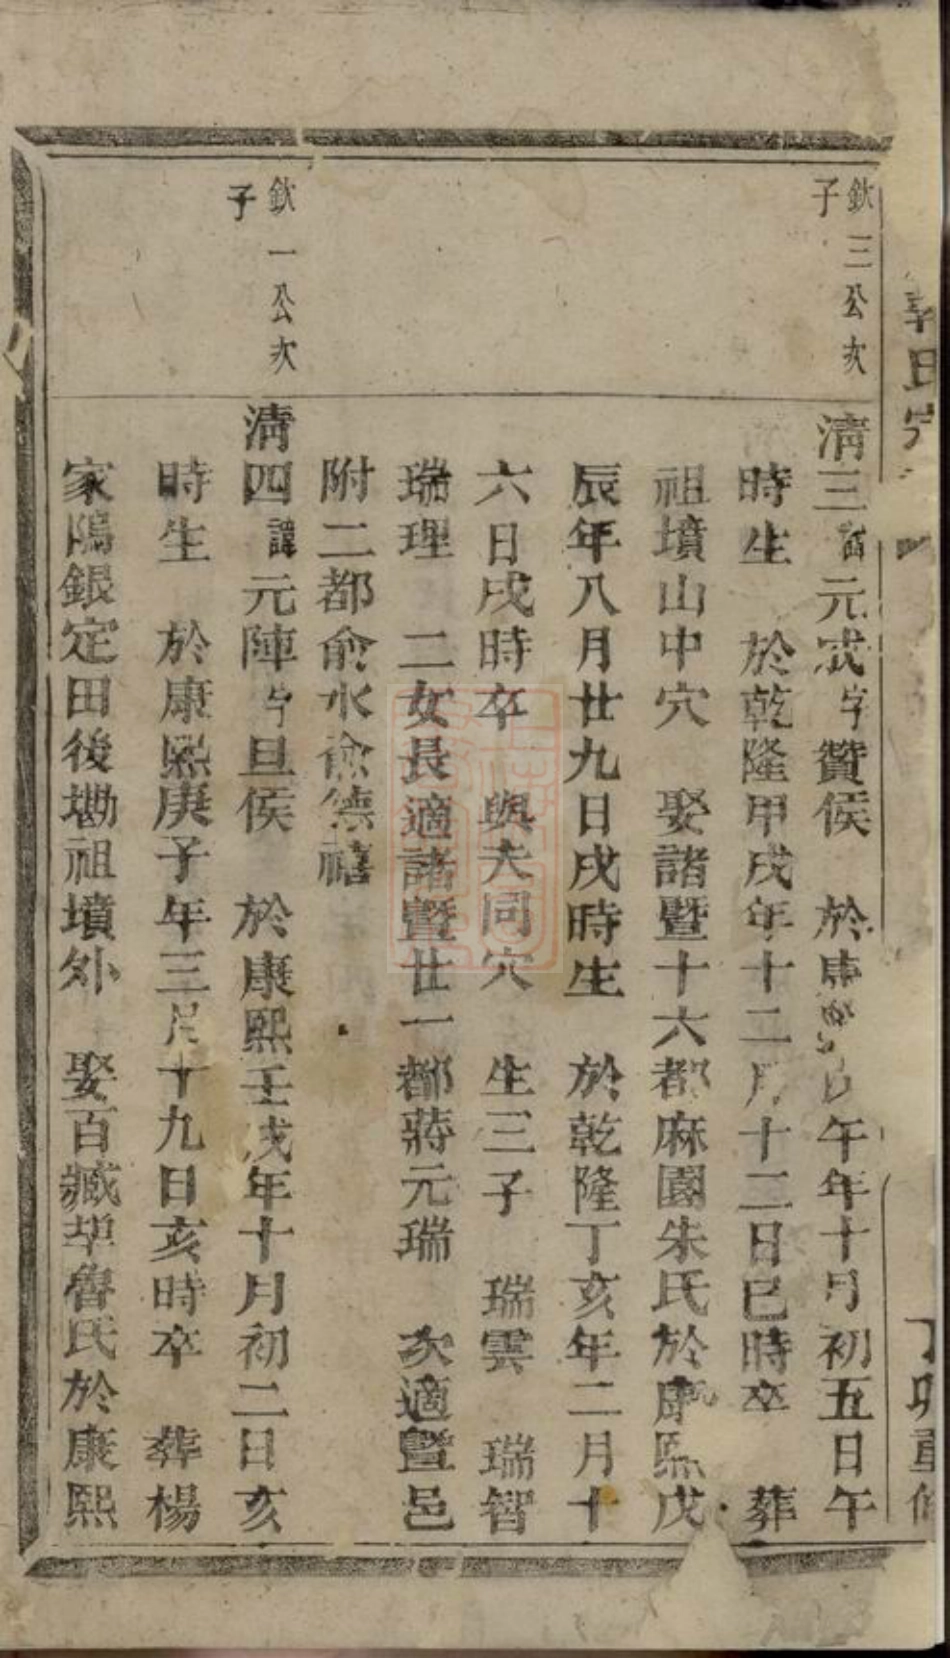 欽三公次
子
清三諱元武字贊侯　於康熙午年十月初五日午
時生　於乾隆甲戌年十二月十二日巳時卒　葬
祖墳山中穴　娶諸暨十六都麻園朱氏於康熙戊
辰年八月廿九日戌時生　於乾隆丁亥年二月十
六日戌時卒　與夫同穴　生三子　瑞雲　瑞智
瑞理　二女長適諸暨廿一都蔣元瑞　次適暨邑
附二都俞水俞德禧
欽一公次
子
清四諱元陣字旦侯　於康熙壬戌年十月初二日亥
時生　於康熙庚子年三月十九日亥時卒　葬楊
家隝銀定田後墈祖墳外　娶百藏魯氏於康熙
氏宗
丁卯重修